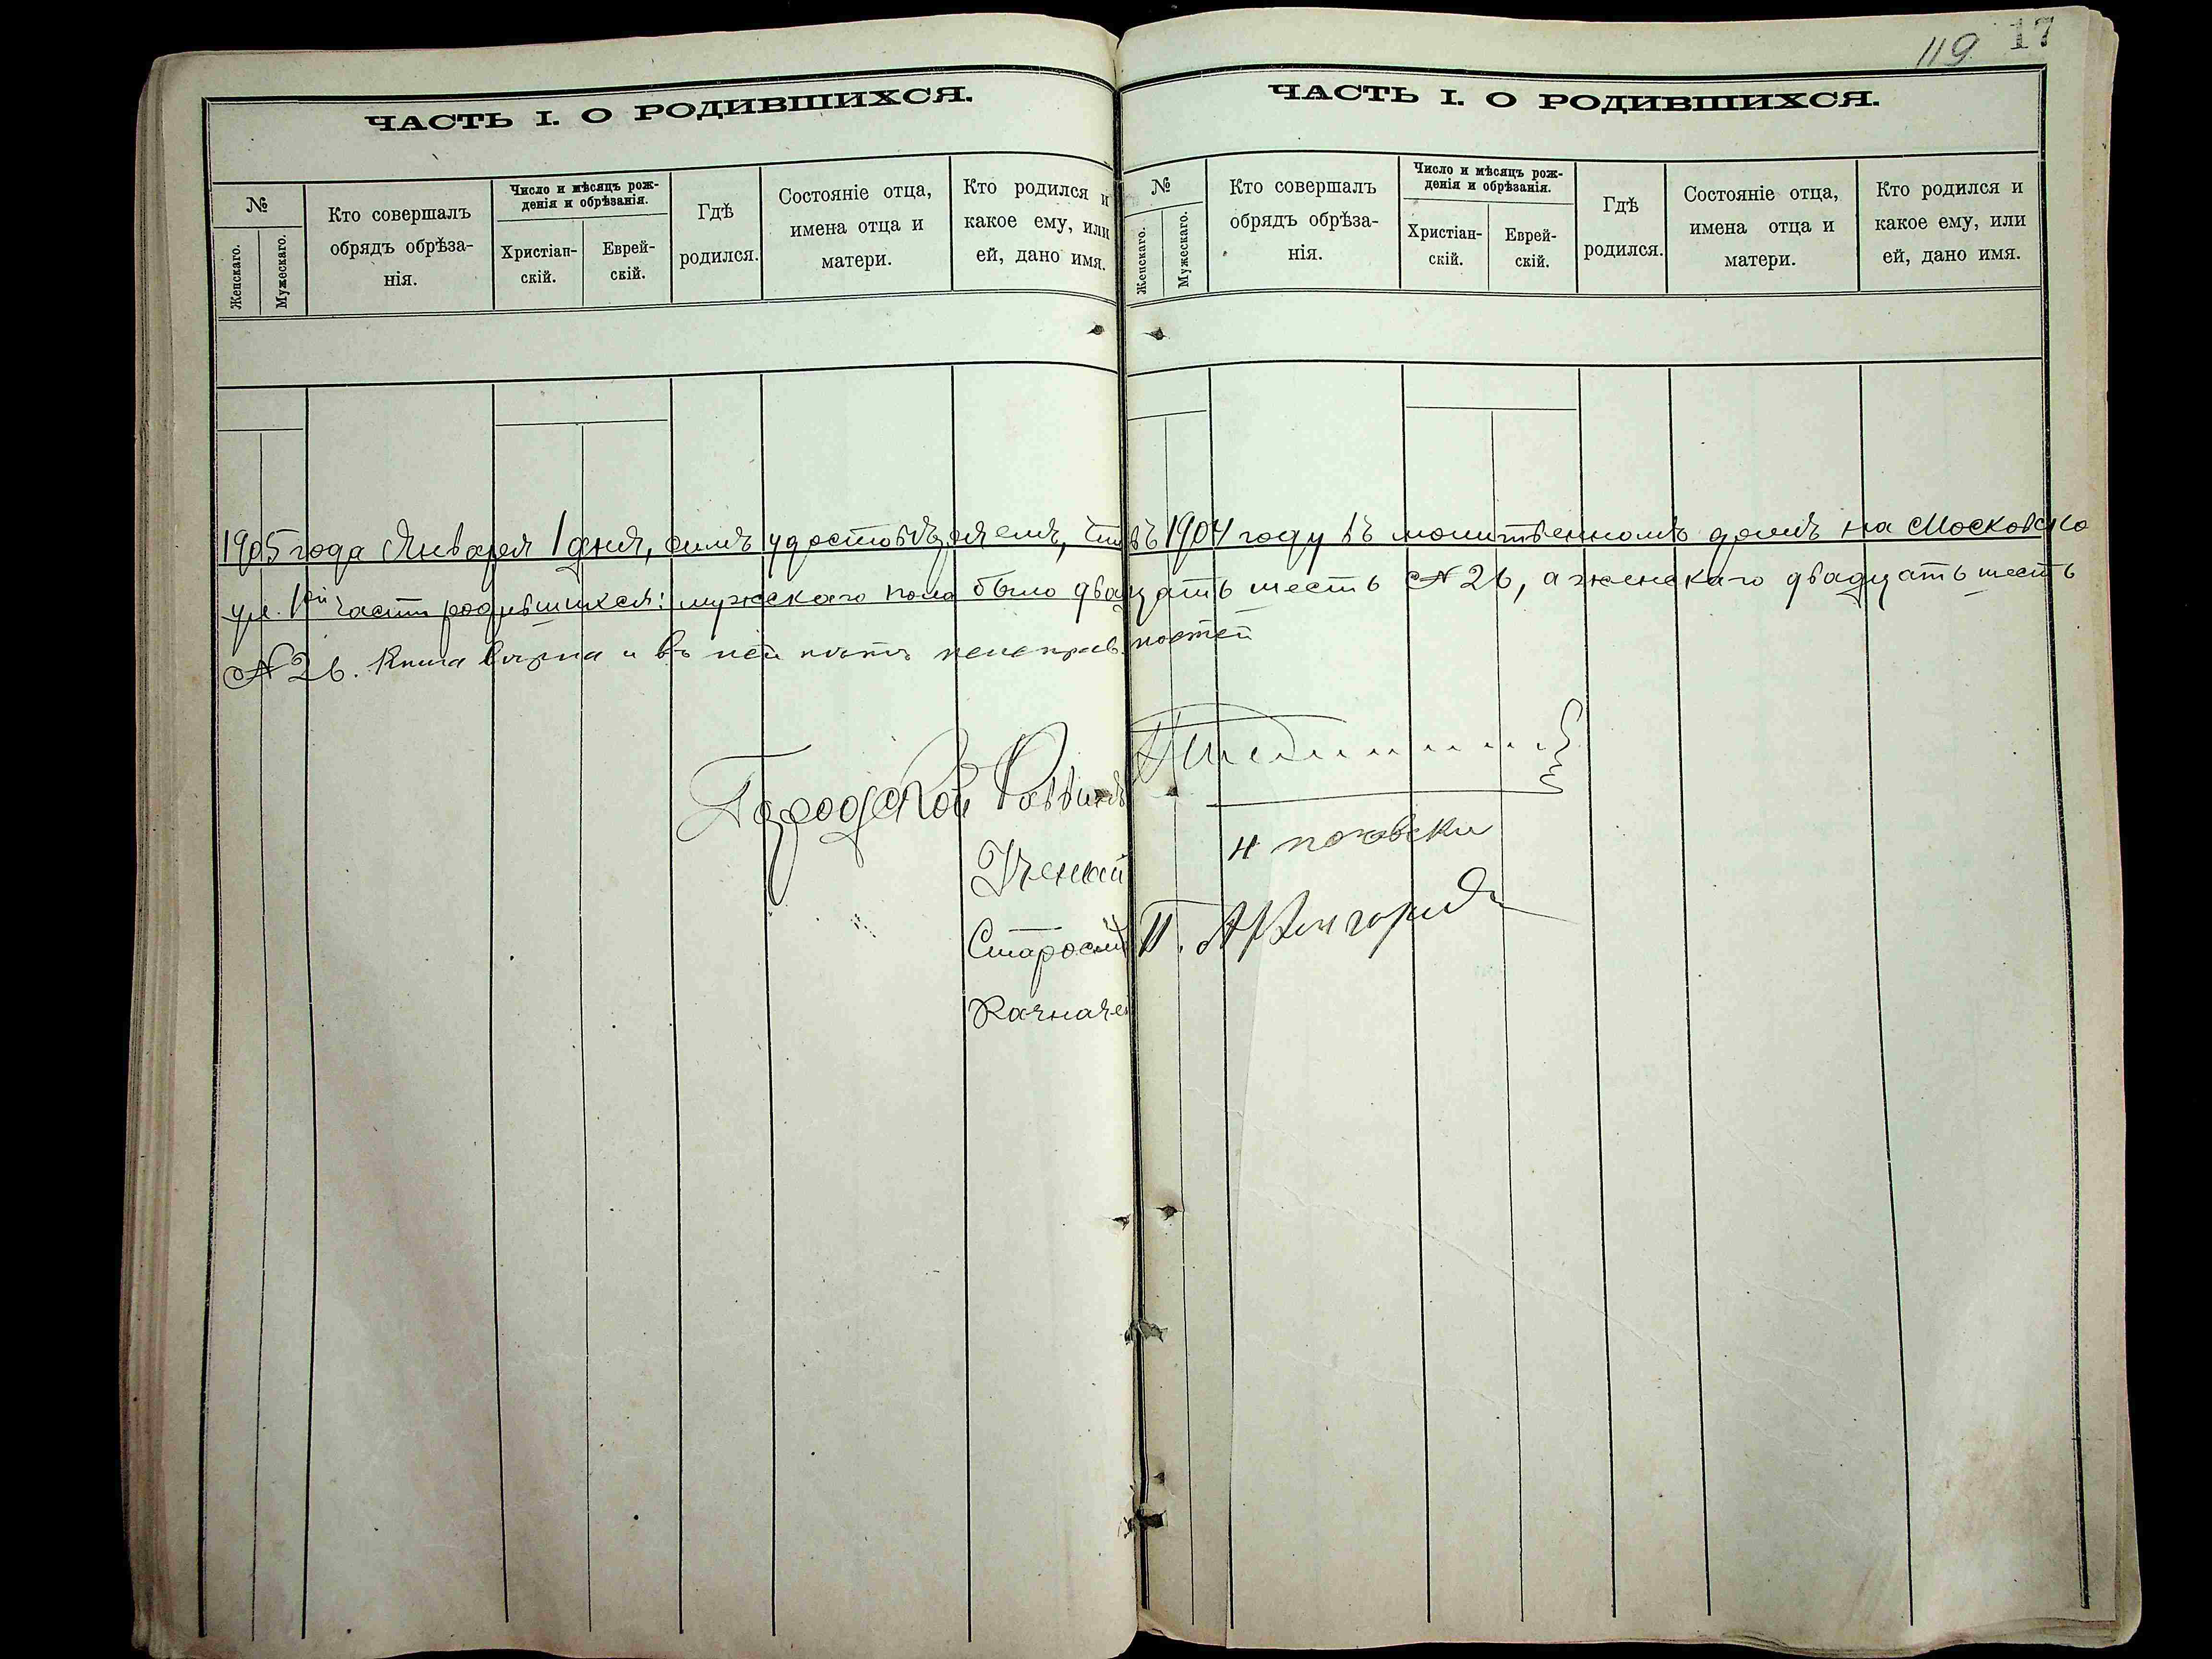 119 17
ЧАСТЬ I. О РОДИВШИХСЯ.
№
Женскаго.
Мужескаго.
Кто совершалъ
обрядъ обрѣза-
нія.
Число и мѣсяцъ рож-
денія и обрѣзанія.
Христіан-
скій.
Еврей-
скій.
Гдѣ
родился.
Состояніе отца,
имена отца и
матери.
Кто родился и
какое ему, или
ей, дано имя.
ЧАСТЬ I. О РОДИВШИХСЯ.
№
Женскаго.
Мужескаго.
Кто совершалъ
обрядъ обрѣза-
нія.
Число и мѣсяцъ рож-
денія и обрѣзанія.
Христіан-
скій.
Еврей-
скій.
Гдѣ
родился.
Состояніе отца,
имена отца и
матери.
Кто родился и
какое ему, или
ей, дано имя.
1905 года Января 1 дня, симъ удостовѣряемъ, что въ 1904 году въ молитвенномъ домѣ на Московско
ул. 1ой части родившихся: мужскаго пола было двадцать шесть № 26, а женскаго двадцать шесть
№ 26. Книга вѣрна и въ ней нѣтъ неисправностей
Городской Раввинъ
Ученый
Староста
Казначей